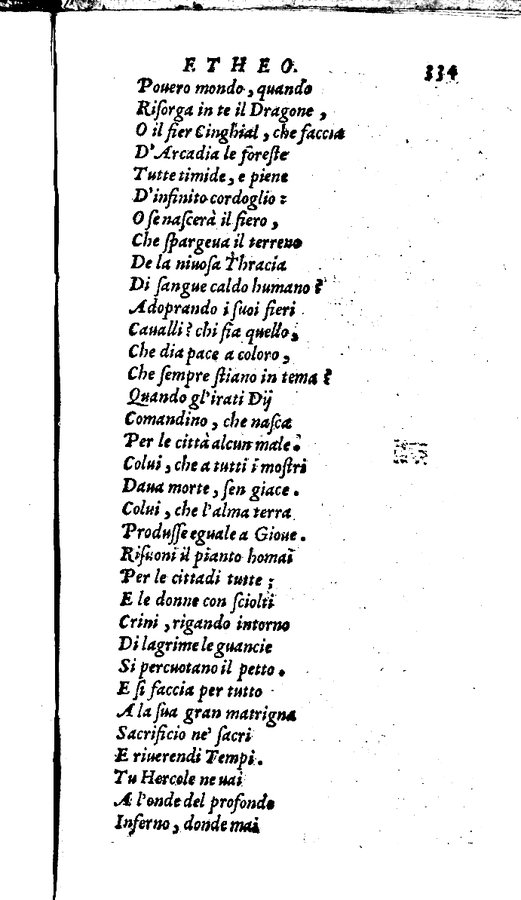 ETHEO. 334
Pouero mondo, quando
Riſorga in te il Dragone,
O il fier Cinghial, che faccia
D'Arcadia le foreſte
Tutte timide, e piene
D'infinito cordoglio:
O ſe naſcerà il fiero,
Che ſpargeua il terreno
De la niuoſa Thracia
Di ſangue caldo humano?
Adoprando i ſuoi fieri
Caualli? chi fia quello,
Che dia pace a coloro,
Che ſempre ſtiano in tema?
Quando gl'irati Dij
Comandino, che naſca
Per le città alcun male?
Colui, che a tutti i moſtri
Daua morte, ſen giace.
Colui, che l'alma terra
Produſſe eguale a Gioue.
Riſuoni il pianto homai
Per le cittadi tutte;
E le donne con ſciolti
Crini, rigando intorno
Di lagrime le guancie
Si percuotano il petto.
E ſi faccia per tutto
A la ſua gran matrigna
Sacrificio ne' ſacri
E riuerendi Tempi.
Tu Hercole ne uai
A l'onde del profondo
Inferno, donde mai